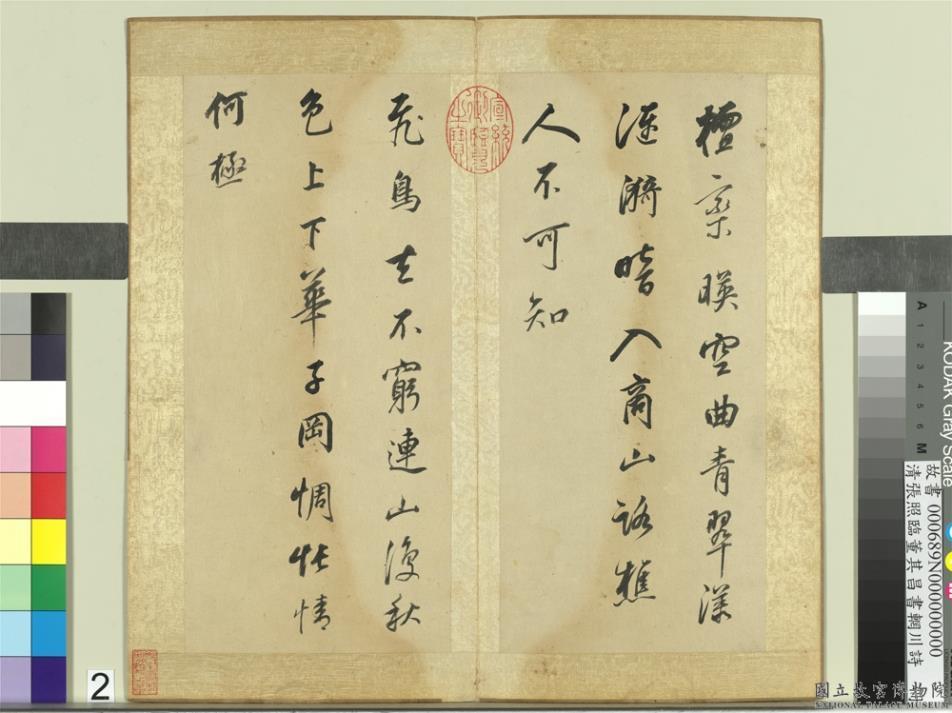 檀欒暎空曲青翠漾
漣漪暗入商山路樵
人不可知
飛鳥去不窮連山復秋
色上下華子岡惆悵情
何極
宣統御覽之寶
2
KODAK Gray Scale
A 1 2 3 4 5 6 M
故書 000689N000000000
清張照臨董其昌書輞川詩
國立故宮博物院
NATIONAL PALACE MUSEUM